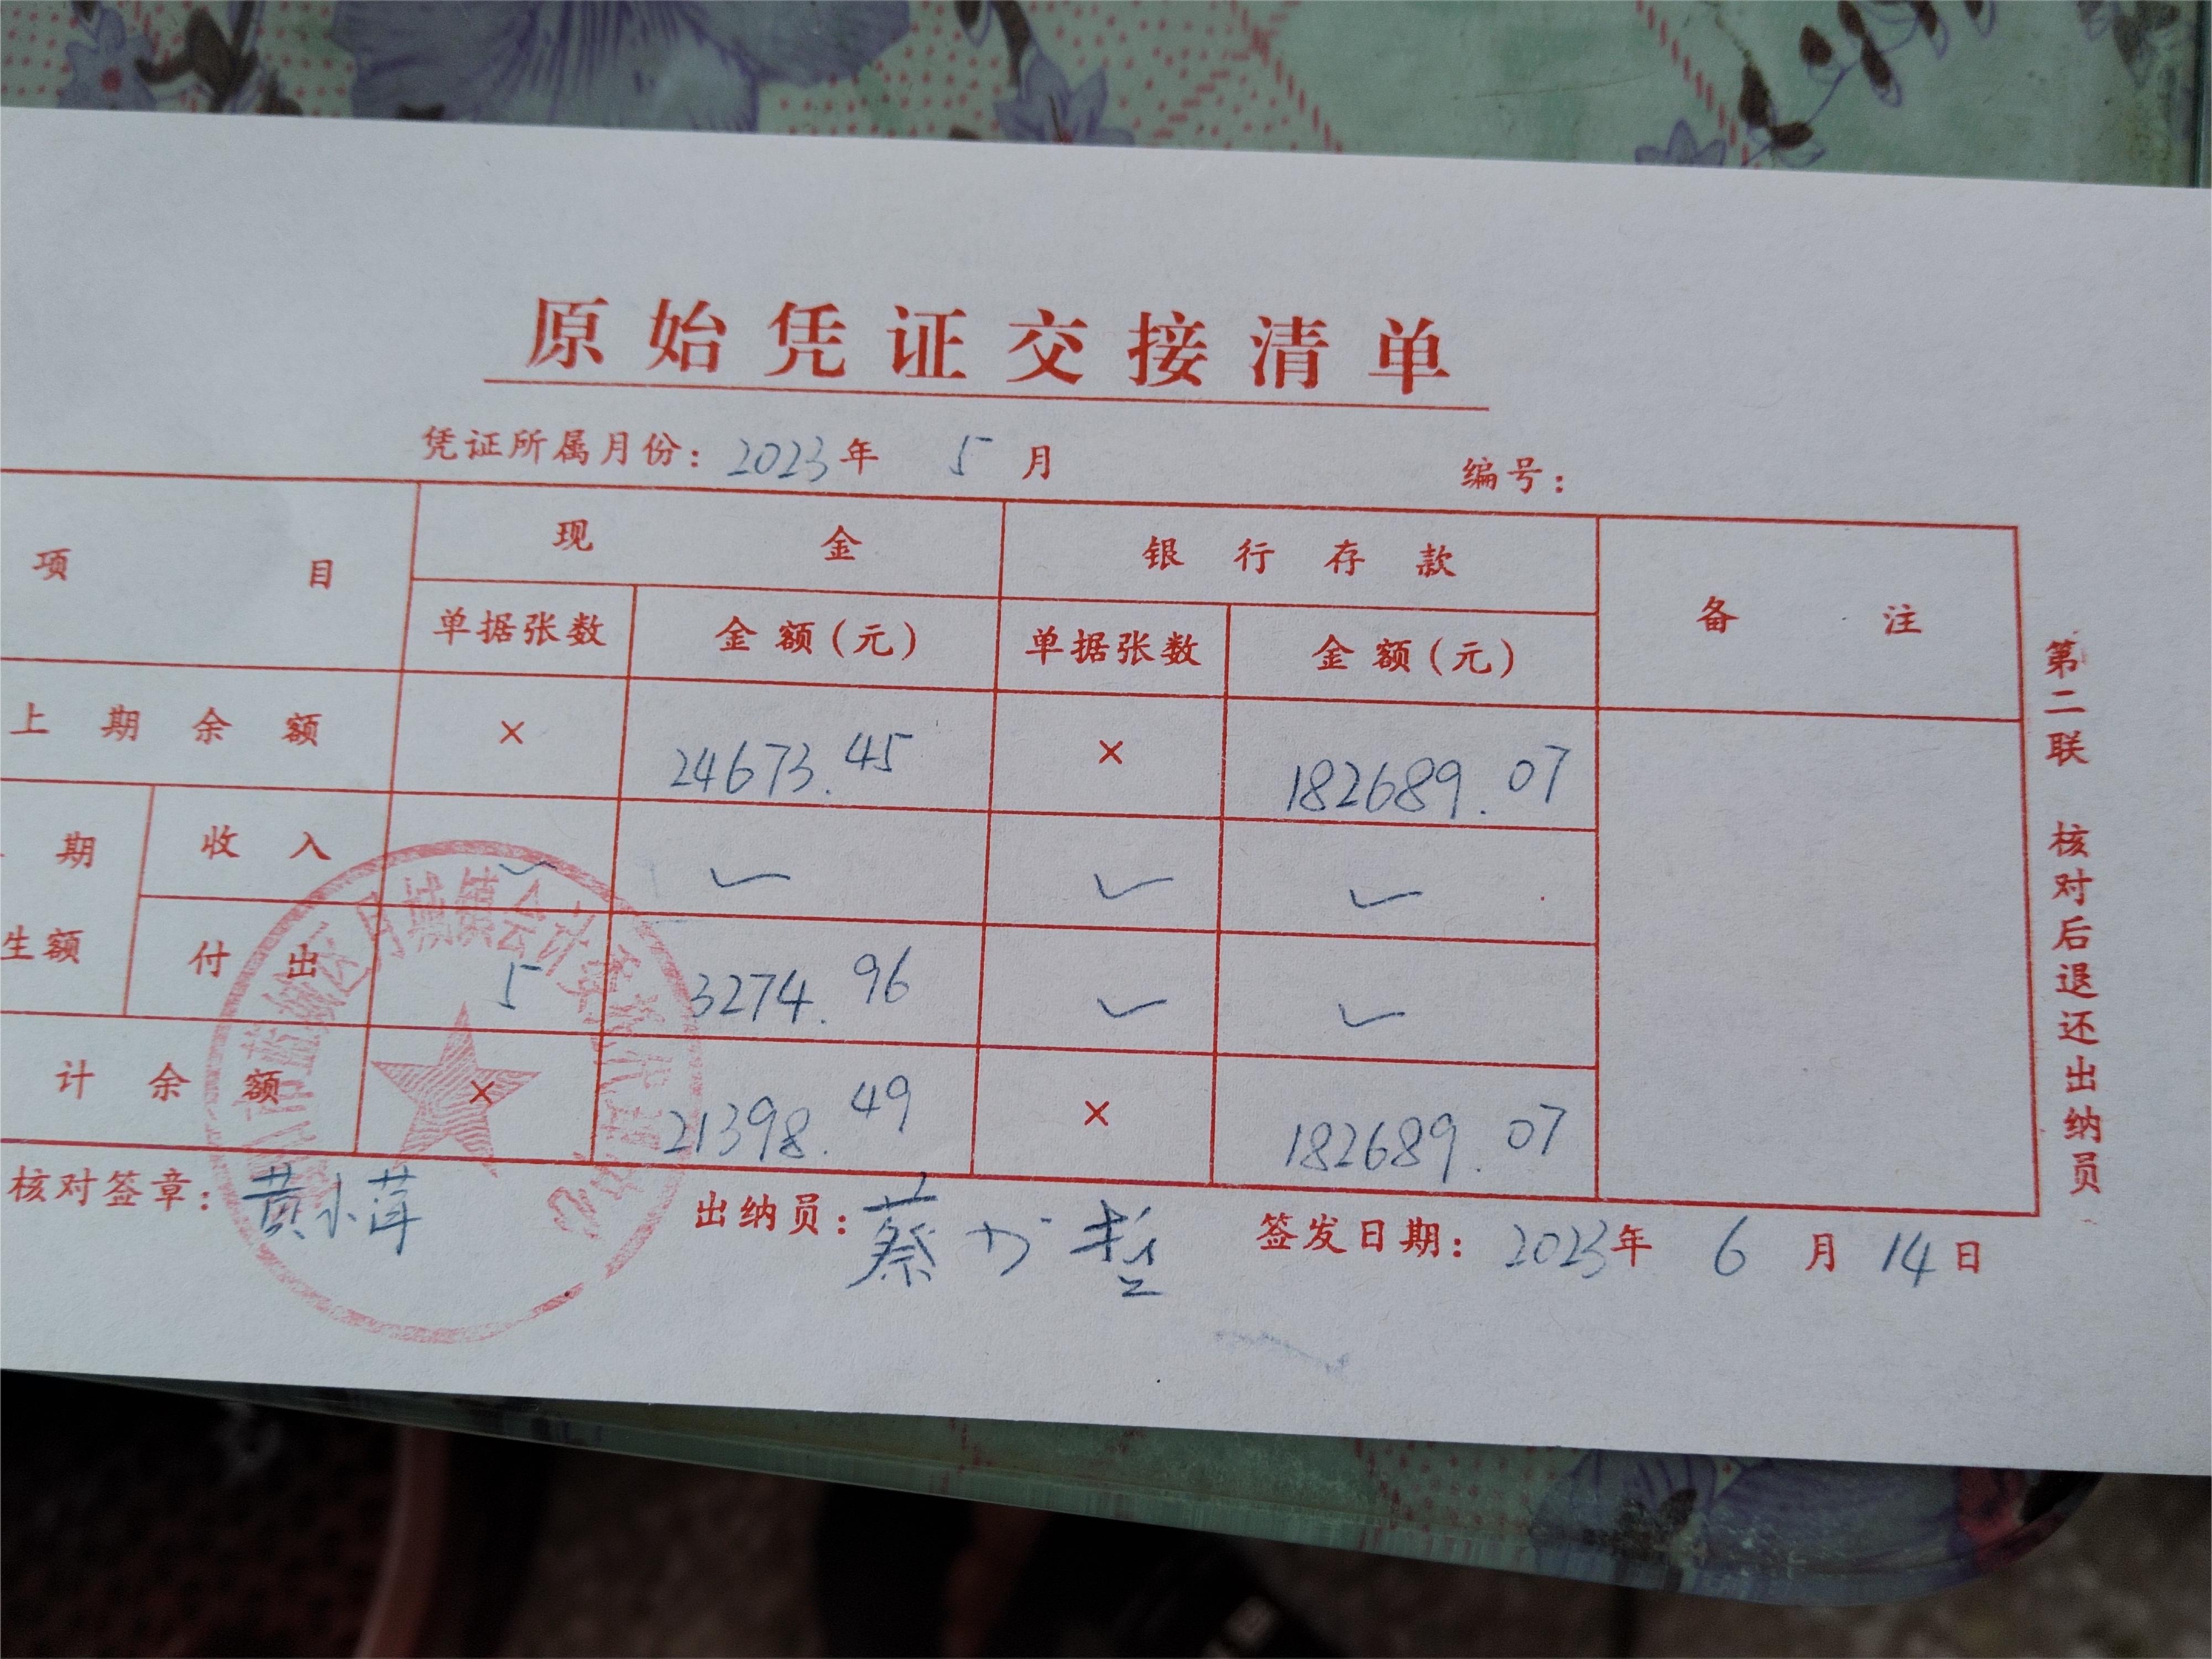 原始凭证交接清单
凭证所属月份：2023年 5月 编号：
项目 现金 银行存款 备注
单据张数 金额（元） 单据张数 金额（元）
上期余额 × 24673.45 × 182689.07
期 收入
生额 付出 5 3274.96
计余额 × 21398.49 × 182689.07
核对签章：黄小茸 出纳员：蔡 签发日期：2023年 6月 14日
第二联 核对后退还出纳员
月城镇会计